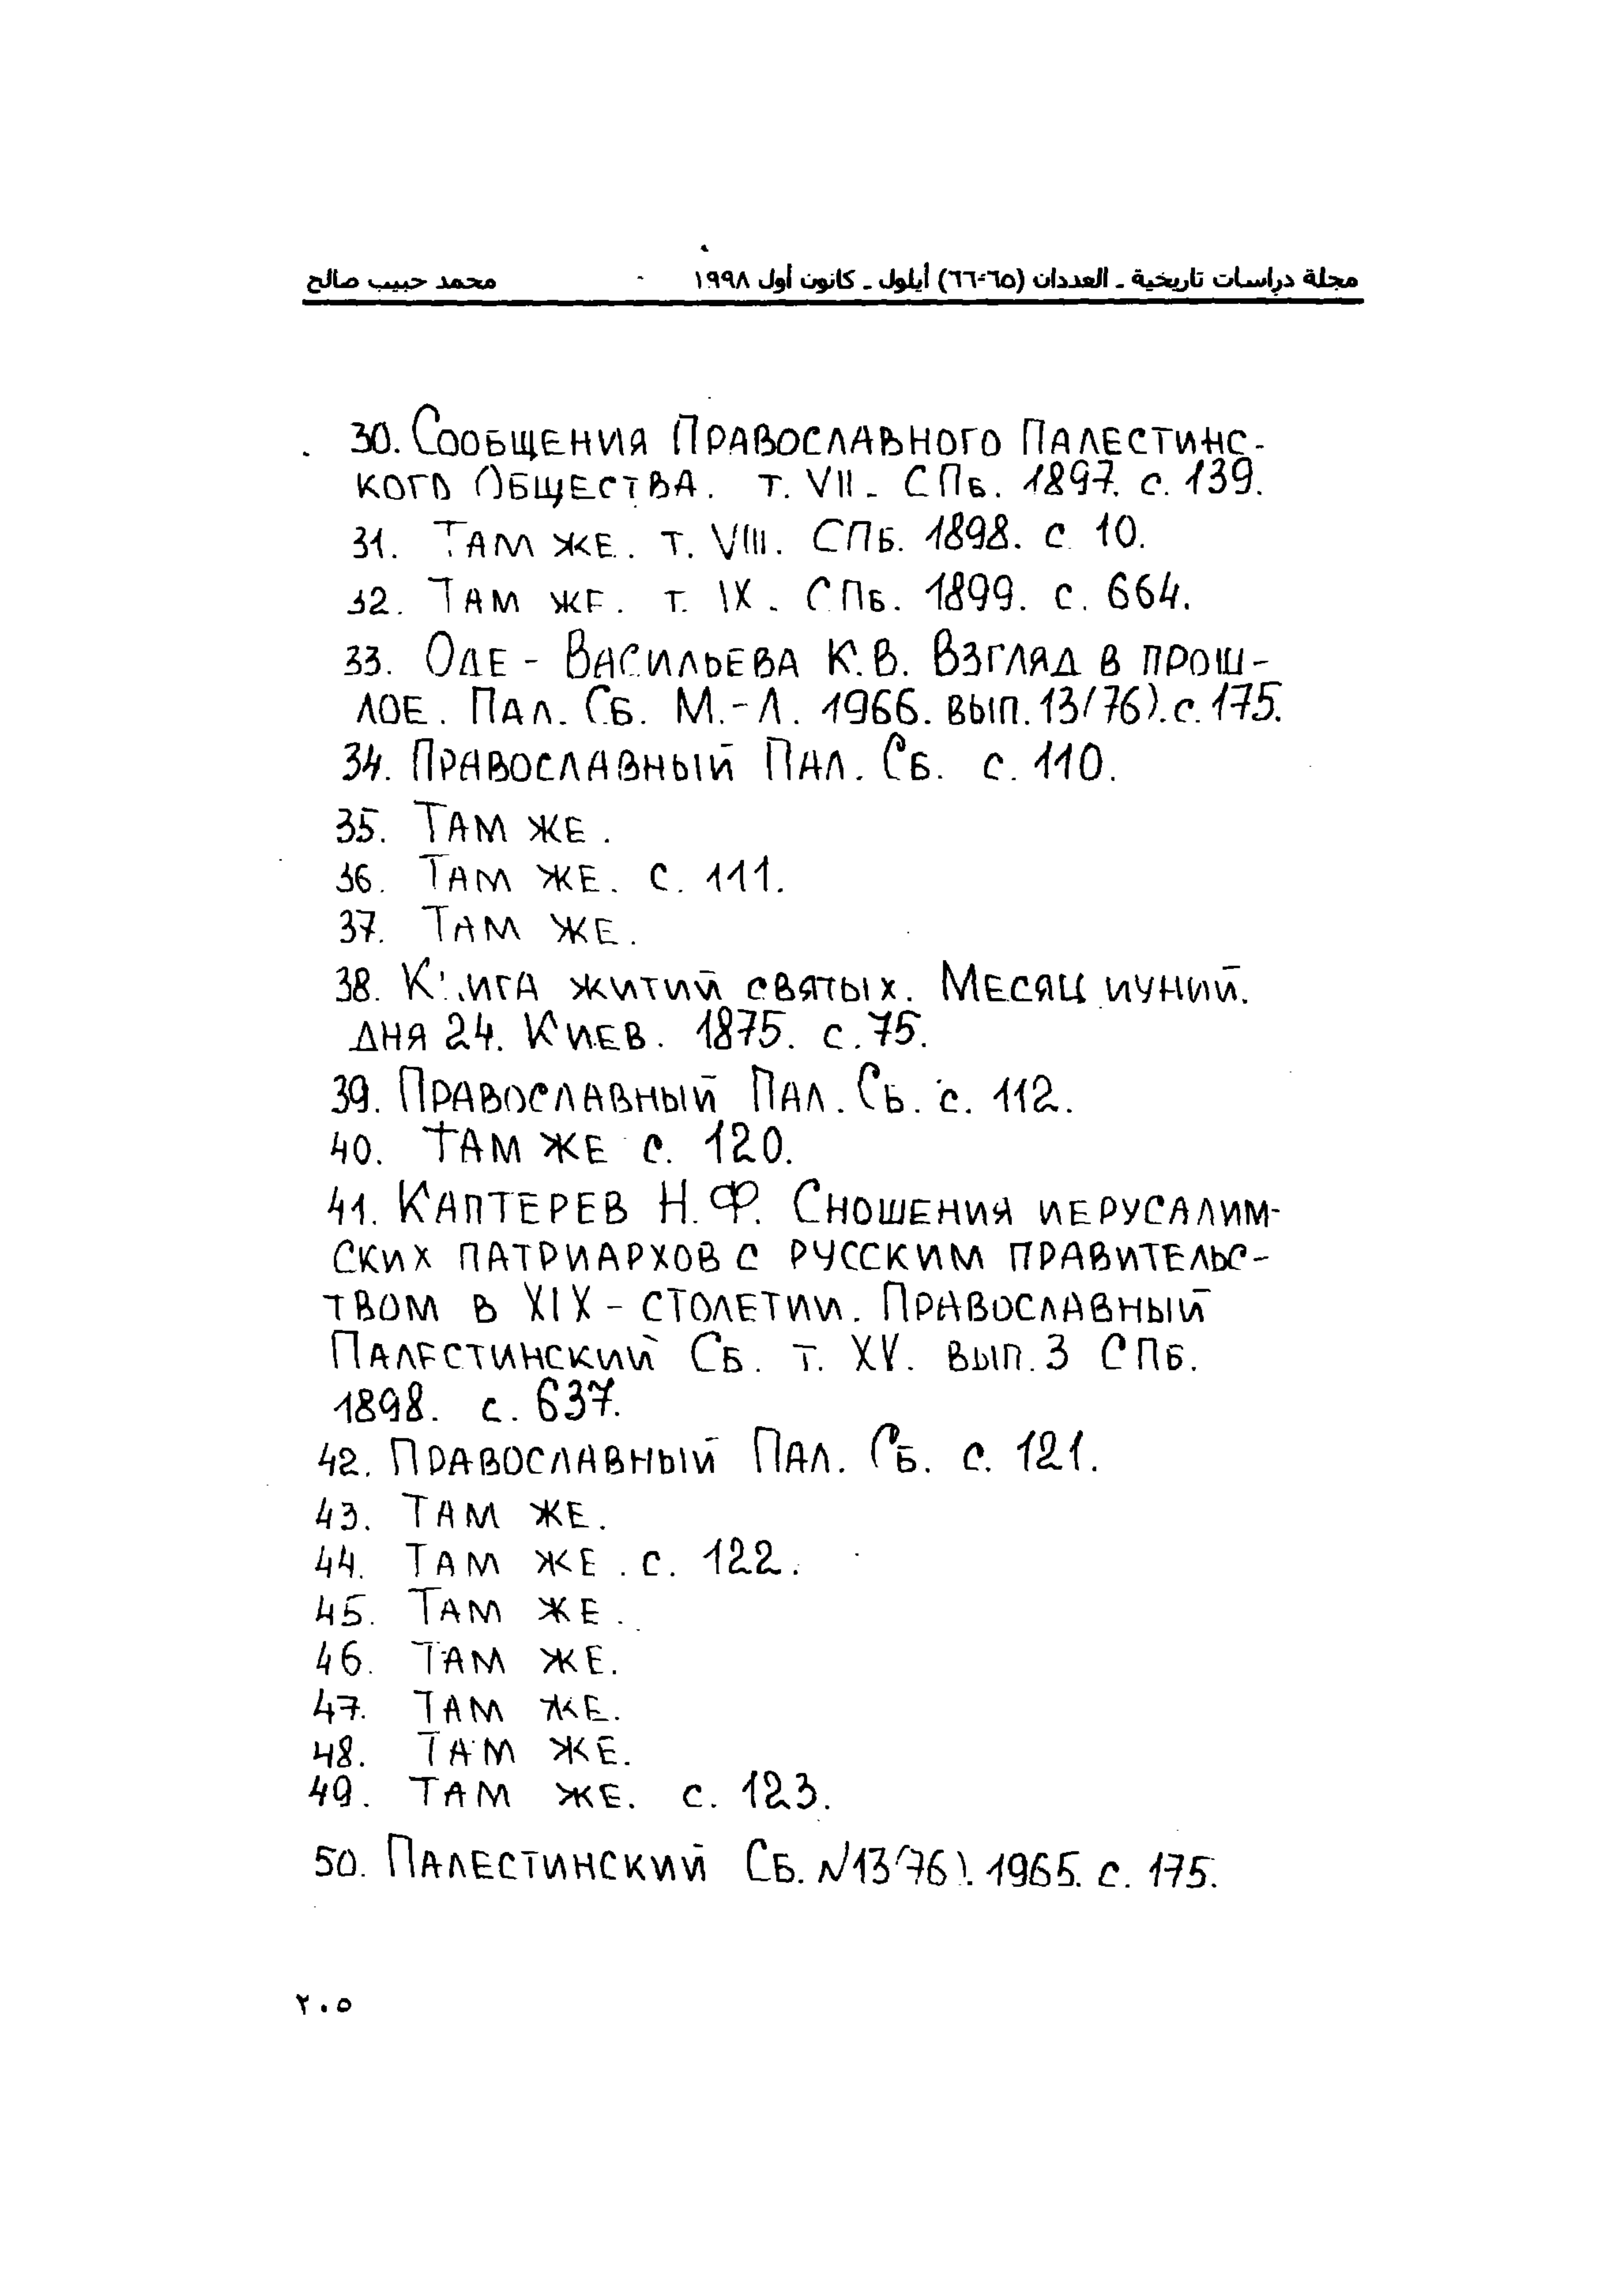 مجلة دراسات تاريخية ـ العددان (٦٥-٦٦) أيلول ـ كانون أول ١٩٩٨ محمد حبيب صالح
30. Сообщения Православного Палестинс-
кого Общества. т. VII. СПб. 1897. с. 139.
31. Там же. т. VIII. СПб. 1898. с. 10.
32. Там же. т. IX. СПб. 1899. с. 664.
33. Оде - Васильева К.В. Взгляд в прош-
лое. Пал. Сб. М.-Л. 1966. вып. 13/76). с. 175.
34. Православный Пал. Сб. с. 110.
35. Там же.
36. Там же. с. 111.
37. Там же.
38. Книга житий святых. Месяц иуний.
дня 24. Киев. 1875. с. 75.
39. Православный Пал. Сб. с. 112.
40. Там же с. 120.
41. Каптерев Н.Ф. Сношения иерусалим-
ских патриархов с русским правительс-
твом в XIX - столетии. Православный
Палестинский Сб. т. XV. вып. 3 СПб.
1898. с. 637.
42. Православный Пал. Сб. с. 121.
43. Там же.
44. Там же. с. 122.
45. Там же.
46. Там же.
47. Там же.
48. Там же.
49. Там же. с. 123.
50. Палестинский Сб. N13(76). 1965. с. 175.
٢٠٥